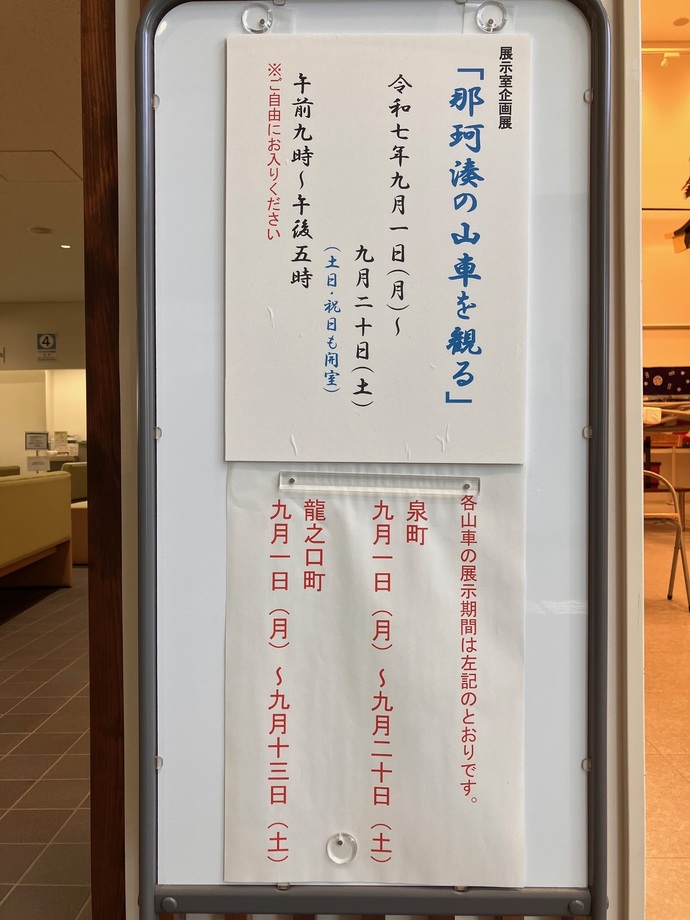 展示室企画展
「那珂湊の山車を観る」
令和七年九月一日(月)〜
九月二十日(土)
(土日・祝日も開室)
午前九時〜午後五時
※ご自由にお入りください
各山車の展示期間は左記のとおりです。
泉町
九月一日(月)〜九月二十日(土)
龍之口町
九月一日(月)〜九月十三日(土)
4